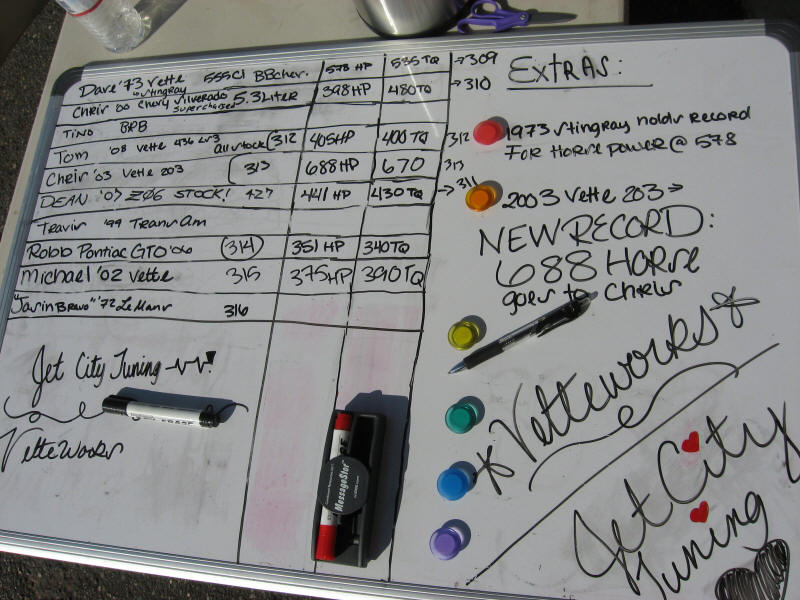 Dave '73 Vette 555CI BBchev. 578 HP 535 TQ →309
w/stingray
Chris' 00 Chevy Silverado 5.3 Liter 398HP 480TQ →310
supercharged
Tino BRB
Tom '08 Vette 436 LS3 all stock (312 405HP 400TQ 312
Chris '03 Vette 203 313 688HP 670 313
DEAN '07 Z06 STOCK! 427 441 HP 430TQ →311
Travis '99 Trans Am
Robb Pontiac GTO '06 (314) 351 HP 340TQ
Michael '02 Vette 315 375HP 390TQ
"Jasin Bravo" '72 LeMans 316
Jet City Tuning
VetteWorks
MessageStor
EXTRAS:
1973 Stingray holds record
FOR Horse power @ 578
2003 Vette 203→
NEW RECORD:
688 Horse
goes to Chris
*Vetteworks*
Jet City
Tuning